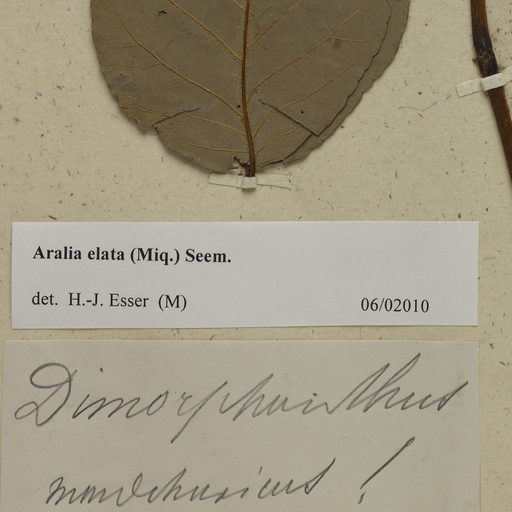 Aralia elata (Miq.) Seem.
det. H.-J. Esser (M) 06/02010
Dimorphanthus
mandchuricus !